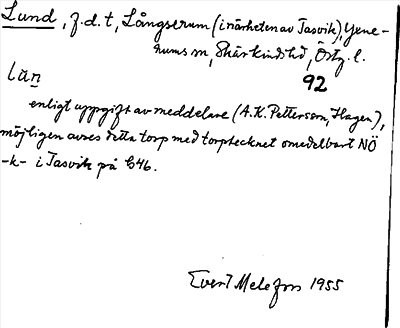 Lund, f.d. t, Långserum (i närheten av Tasvik), Yxne-
rums sn, Skärkinds hd, Östg. l.
92
lun
enligt uppgift av meddelare (A.K. Pettersson, Hagen),
möjligen avses detta torp med torptecknet omedelbart NÖ
-k- i Tasvik på G46.
Evert Melefors 1955